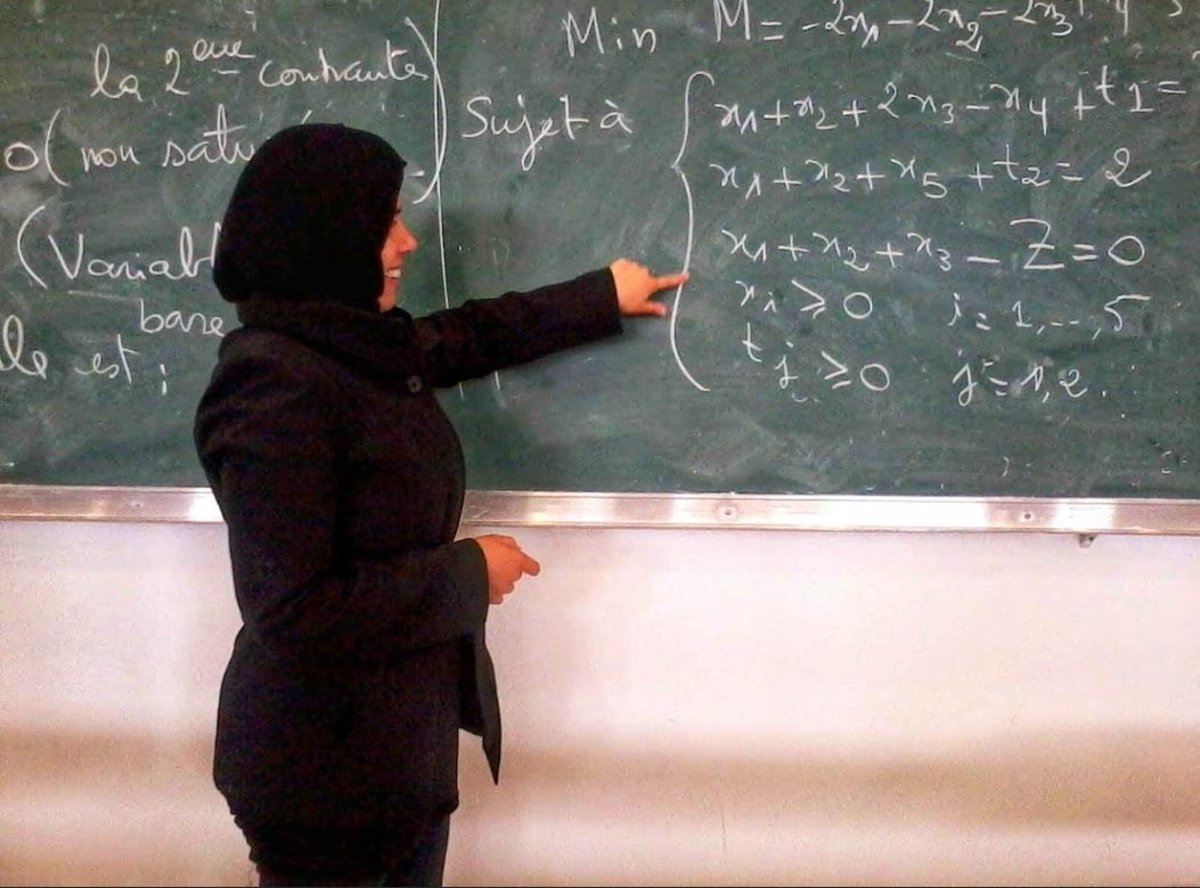 la 2ème contrainte)
0 (non satu
(Variabl
base
le est :
Min M = -2x₁ - 2x₂ - 2x₃ + 4
Sujet à
x₁ + x₂ + 2x₃ - x₄ + t₁ =
x₁ + x₂ + x₅ + t₂ = 2
x₁ + x₂ + x₃ - Z = 0
xᵢ ≥ 0 i = 1, --, 5
tⱼ ≥ 0 j = 1, 2.